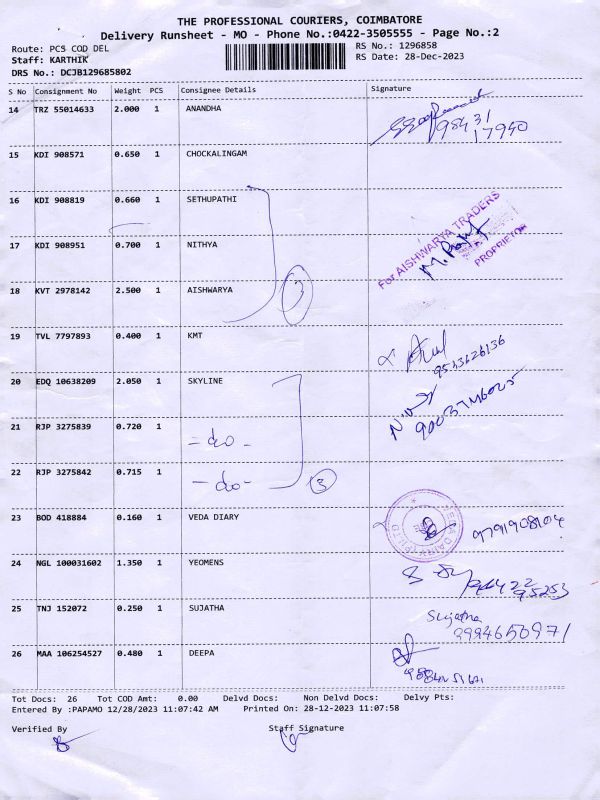 THE PROFESSIONAL COURIERS, COIMBATORE
Delivery Runsheet - MO - Phone No.:0422-3505555 - Page No.:2
Route: PCS COD DEL
RS No.: 1296858
Staff: KARTHIK
RS Date: 28-Dec-2023
DRS No.: DCJB129685802
S No Consignment No Weight PCS Consignee Details Signature
14 TRZ 55014633 2.000 1 ANANDHA
98431
17940
15 KDI 908571 0.650 1 CHOCKALINGAM
16 KDI 908819 0.660 1 SETHUPATHI
For AISHWARYA TRADERS
PROPRIETOR
17 KDI 908951 0.700 1 NITHYA
18 KVT 2978142 2.500 1 AISHWARYA
3
19 TVL 7797893 0.400 1 KMT
9513626136
20 EDQ 10638209 2.050 1 SKYLINE
21 RJP 3275839 0.720 1 -do-
22 RJP 3275842 0.715 1 -do-
3
23 BOD 418884 0.160 1 VEDA DIARY
9791908104
24 NGL 100031602 1.350 1 YEOMENS
95253
25 TNJ 152072 0.250 1 SUJATHA
Sujatha
9994650971
26 MAA 106254527 0.480 1 DEEPA
Tot Docs: 26 Tot COD Amt: 0.00 Delvd Docs: Non Delvd Docs: Delvy Pts:
Entered By :PAPAMO 12/28/2023 11:07:42 AM Printed On: 28-12-2023 11:07:58
Verified By Staff Signature